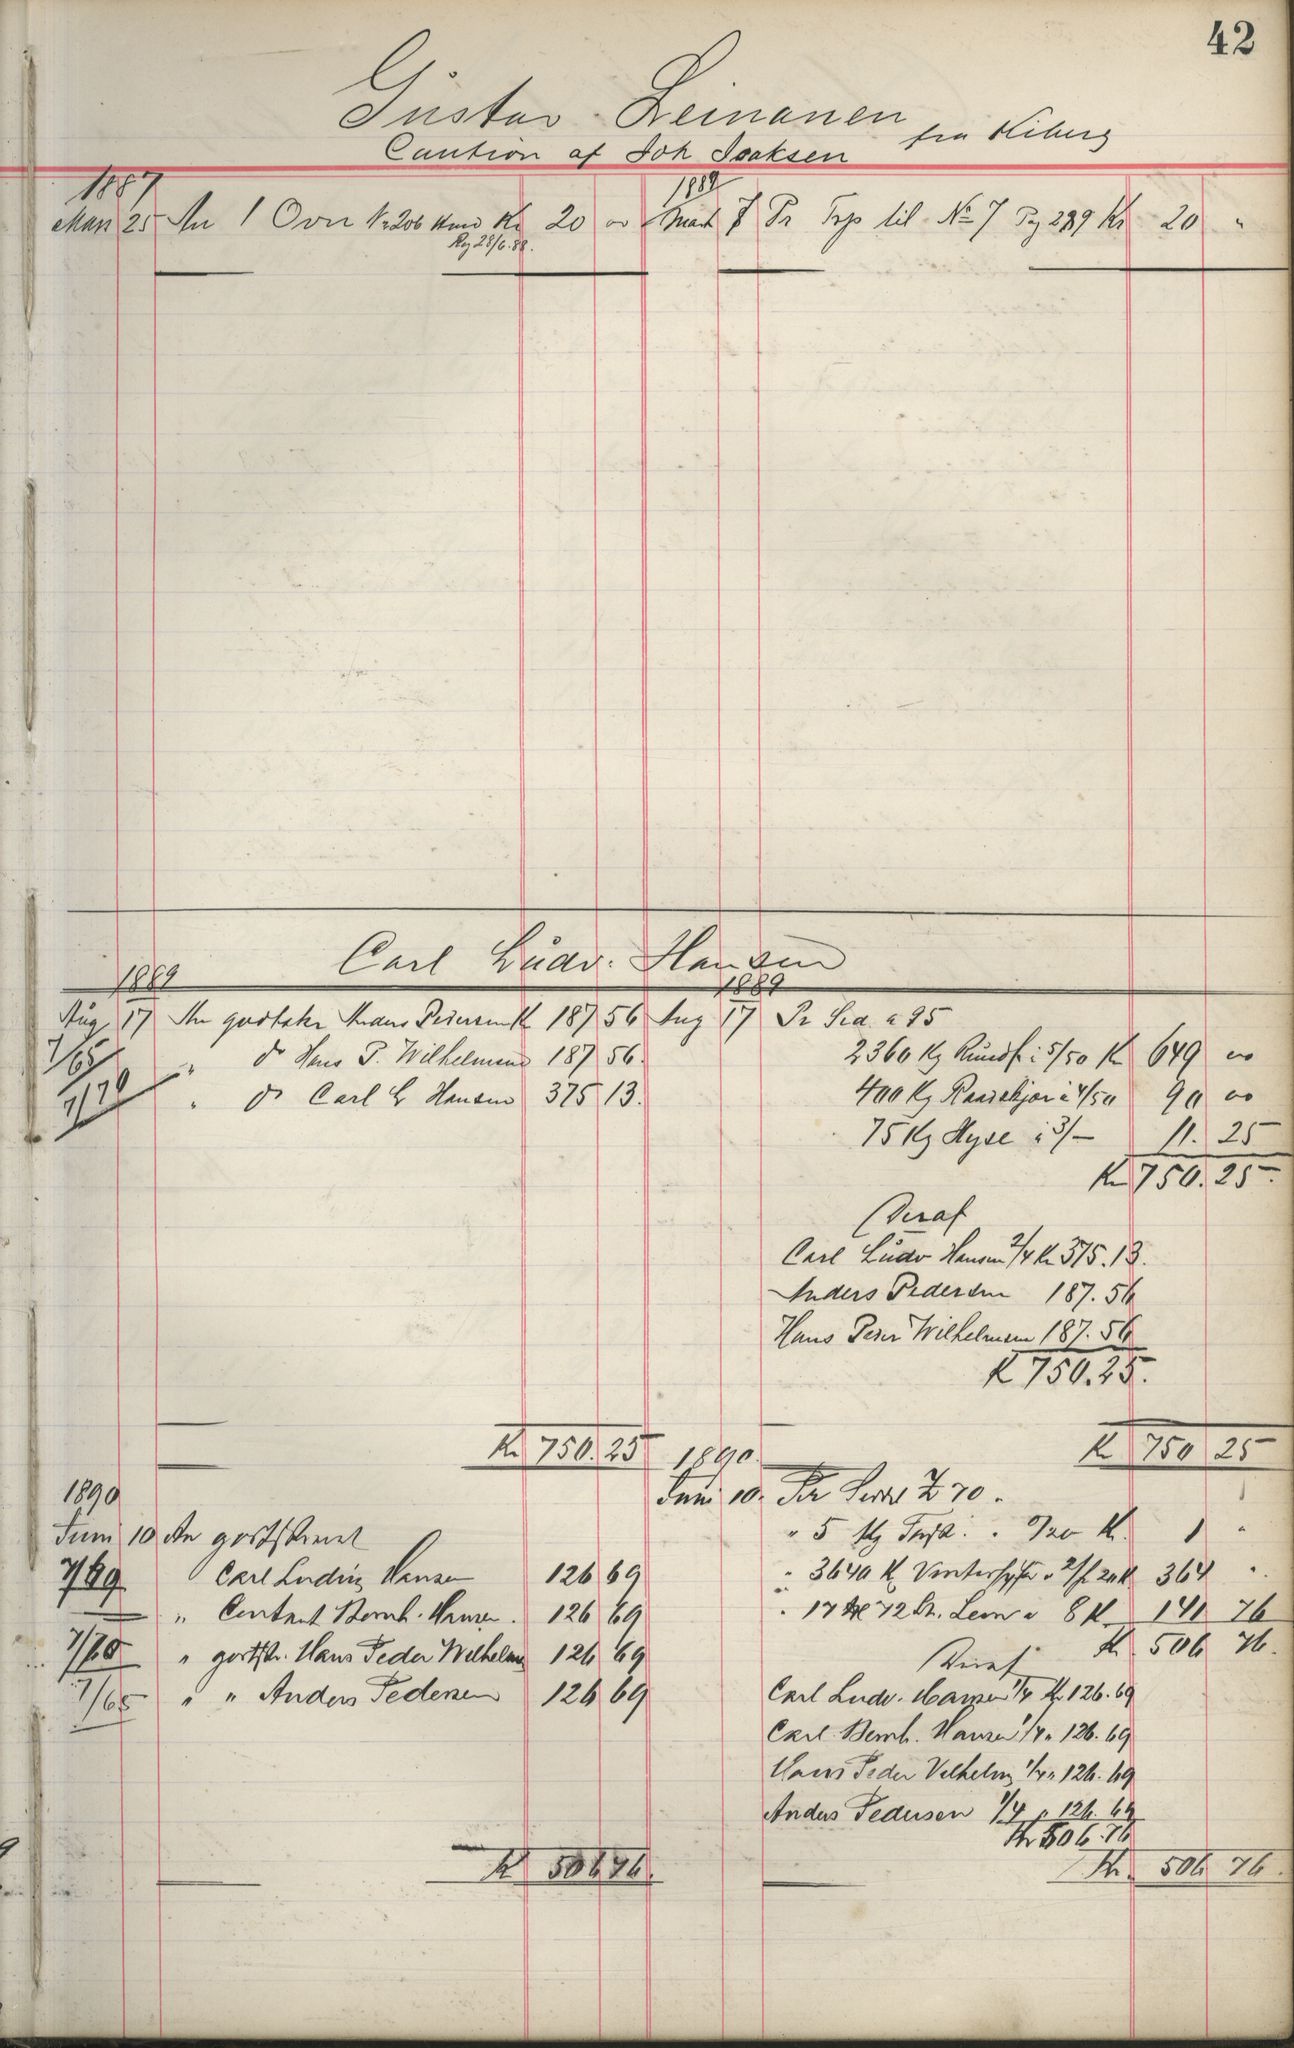 42
Gustav Leinanen fra Kiberg
Caution af Joh Isaksen
1887
Mars 25 An 1 Ovn No 206 Kr 20 00
Reg 28/6.88.
1889
Mart 7 Pr Trp til No 7 Pag 289 Kr 20 "
Carl Ludv. Hansen
1889
Aug 17 An godtskr Anders Pedersen Kr 187 56
7/65 " do Hans P. Wilhelmsen 187 56.
7/70 " do Carl L Hansen 375 13.
1889
Aug 17 Pr Sed a 95
2360 Kg Rundf. a 5/50 Kr 649 00
400 Kg Raaskjær a 4/50 90 00
75 Kg Hyse a 3/- 11. 25
Kr 750. 25.
Deraf
Carl Ludv Hansen 2/4 Kr 375.13.
Anders Pedersen 187.56
Hans Peder Wilhelmsen 187.56
K 750.25.
Kr 750. 25
Kr 750 25
1890
Juni 10 An godtskrevet
7/69 Carl Ludvig Hansen 126 69
" Contant Bernh. Hansen. 126 69
7/70 " godtskr. Hans Peder Wilhelms 126 69
7/65 " " Anders Pedersen 126 69
Kr 506 76.
1890.
Juni 10. Per Seddel No 70.
" 5 Kg Torsk " "/20 Kr. 1 "
" 3640 K Vinterhyse 364 "
" 17 72 Lever a 8 K 141 76
Kr 506 76.
Deraf
Carl Ludv. Hansen 1/4 Kr 126.69
Carl Bernh. Hansen 1/4 " 126.69
Hans Peder Vilhelms 1/4 " 126.69
Anders Pedersen 1/4 " 126.69
Kr 506.76
Kr. 506 76.